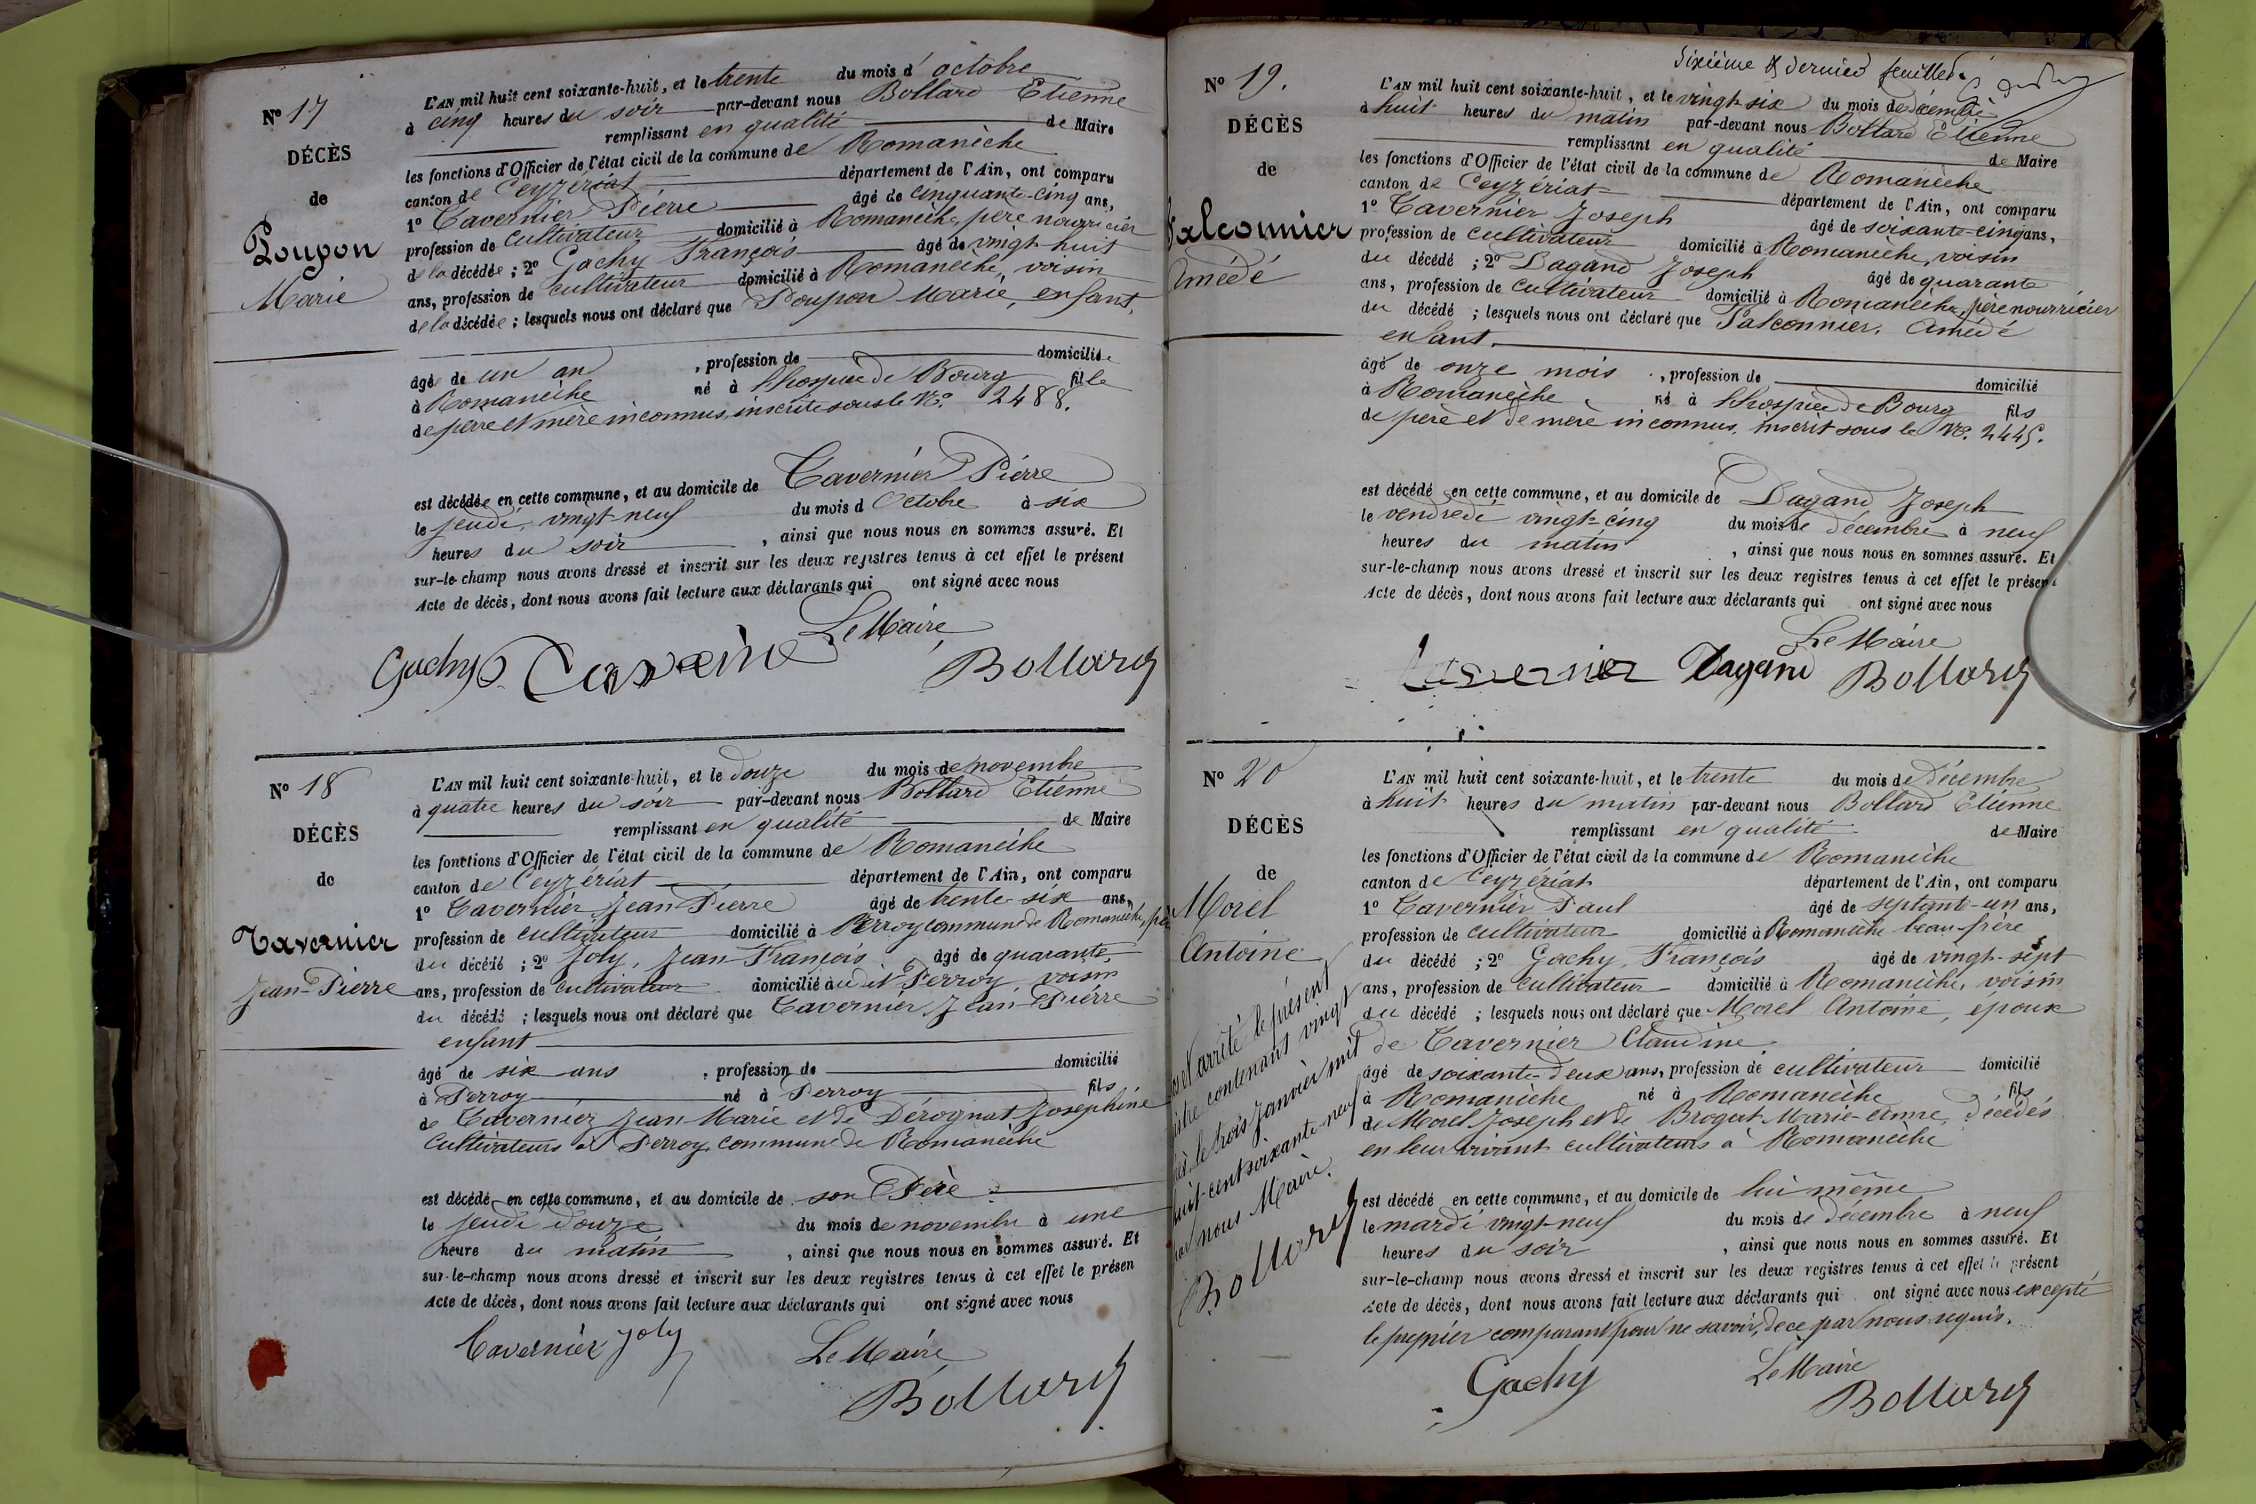 N° 17
DÉCÈS
de
Poupon
Marie
L'AN mil huit cent soixante-huit, et le trente du mois d'octobre
à cinq heures du soir par-devant nous Bollard Etienne
remplissant en qualité de Maire
les fonctions d'Officier de l'état civil de la commune de Romanèche
canton de Ceyzériat département de l'Ain, ont comparu
1° Tavernier Pierre âgé de cinquante-cinq ans,
profession de cultivateur domicilié à Romanèche, père nourricier
de la décédée ; 2° Gachy François âgé de vingt-huit
ans, profession de cultivateur domicilié à Romanèche, voisin
de la décédée ; lesquels nous ont déclaré que Poupon Marie, enfant,
âgé de un an , profession de domicilié
à Romanèche né à l'hospice de Bourg fille
de père et mère inconnus, inscrite sous le N°. 2488.
est décédée en cette commune, et au domicile de Tavernier Pierre
le jeudi vingt-neuf du mois d Octobre à six
heures du soir , ainsi que nous nous en sommes assuré. Et
sur-le-champ nous avons dressé et inscrit sur les deux registres tenus à cet effet le présent
Acte de décès, dont nous avons fait lecture aux déclarants qui ont signé avec nous
Le Maire
Gachy Bollard
N° 18
DÉCÈS
de
Tavernier
Jean-Pierre
L'AN mil huit cent soixante-huit, et le douze du mois de novembre
à quatre heures du soir par-devant nous Bollard Etienne
remplissant en qualité de Maire
les fonctions d'Officier de l'état civil de la commune de Romanèche
canton de Ceyzériat département de l'Ain, ont comparu
1° Tavernier Jean Pierre âgé de trente-six ans,
profession de cultivateur domicilié à Perroy commune de Romanèche, père
du décédé ; 2° Joly, Jean François âgé de quarante
ans, profession de cultivateur domicilié au dit Perroy voisin
du décédé ; lesquels nous ont déclaré que Tavernier Jean Pierre
enfant
âgé de six ans , profession de domicilié
à Perroy né à Perroy fils
de Tavernier Jean Marie et de Dérognat Joséphine
cultivateurs à Perroy commune de Romanèche
est décédé en cette commune, et au domicile de son Père
le jeudi douze du mois de novembre à une
heure du matin , ainsi que nous nous en sommes assuré. Et
sur-le-champ nous avons dressé et inscrit sur les deux registres tenus à cet effet le présen
Acte de décès, dont nous avons fait lecture aux déclarants qui ont signé avec nous
Tavernier Joly Le Maire
Bollard
Sixième & dernier feuillet.
N° 19.
DÉCÈS
de
Falconnier
Amédé
L'AN mil huit cent soixante-huit, et le vingt-six du mois de décembre
à huit heures du matin par-devant nous Bollard Etienne
remplissant en qualité de Maire
les fonctions d'Officier de l'état civil de la commune de Romanèche
canton de Ceyzériat département de l'Ain, ont comparu
1° Tavernier Joseph âgé de soixante-cinq ans,
profession de cultivateur domicilié à Romanèche, voisin
du décédé ; 2° Dagand Joseph âgé de quarante
ans, profession de cultivateur domicilié à Romanèche, père nourricier
du décédé ; lesquels nous ont déclaré que Falconnier. Amédé
enfant.
âgé de onze mois , profession de domicilié
à Romanèche, né à l'hospice de Bourg fils
de père et de mère inconnus, inscrit sous le N°. 2445.
est décédé en cette commune, et au domicile de Dagand Joseph
le vendredi vingt-cinq du mois de décembre à neuf
heures du matin , ainsi que nous nous en sommes assuré. Et
sur-le-champ nous avons dressé et inscrit sur les deux registres tenus à cet effet le présent
Acte de décès, dont nous avons fait lecture aux déclarants qui ont signé avec nous
Le Maire
Tavernier Dagand Bollard
N° 20
DÉCÈS
de
Morel
Antoine
L'AN mil huit cent soixante-huit, et le trente du mois de décembre
à huit heures du matin par-devant nous Bollard Etienne
remplissant en qualité de Maire
les fonctions d'Officier de l'état civil de la commune de Romanèche
canton de Ceyzériat département de l'Ain, ont comparu
1° Tavernier Paul âgé de septante-un ans,
profession de cultivateur domicilié à Romanèche beau-frère
du décédé ; 2° Gachy François âgé de vingt-sept
ans, profession de cultivateur domicilié à Romanèche, voisin
du décédé ; lesquels nous ont déclaré que Morel Antoine, époux
de Tavernier Claudine
âgé de soixante-deux ans, profession de cultivateur domicilié
à Romanèche né à Romanèche fils
de Morel Joseph et de Brogat Marie-Anne, décédés
en leur vivant cultivateurs à Romanèche
est décédé en cette commune, et au domicile de lui même
le mardi vingt-neuf du mois de décembre à neuf
heures du soir , ainsi que nous nous en sommes assuré. Et
sur-le-champ nous avons dressé et inscrit sur les deux registres tenus à cet effet le présent
Acte de décès, dont nous avons fait lecture aux déclarants qui ont signé avec nous excepté
le premier comparant pour ne savoir, de ce par nous requis.
Gachy Le Maire
Bollard
et arrêté le présent
contenant vingt
le trois Janvier mil
huit-cent soixante-neuf
par nous Maire.
Bollard